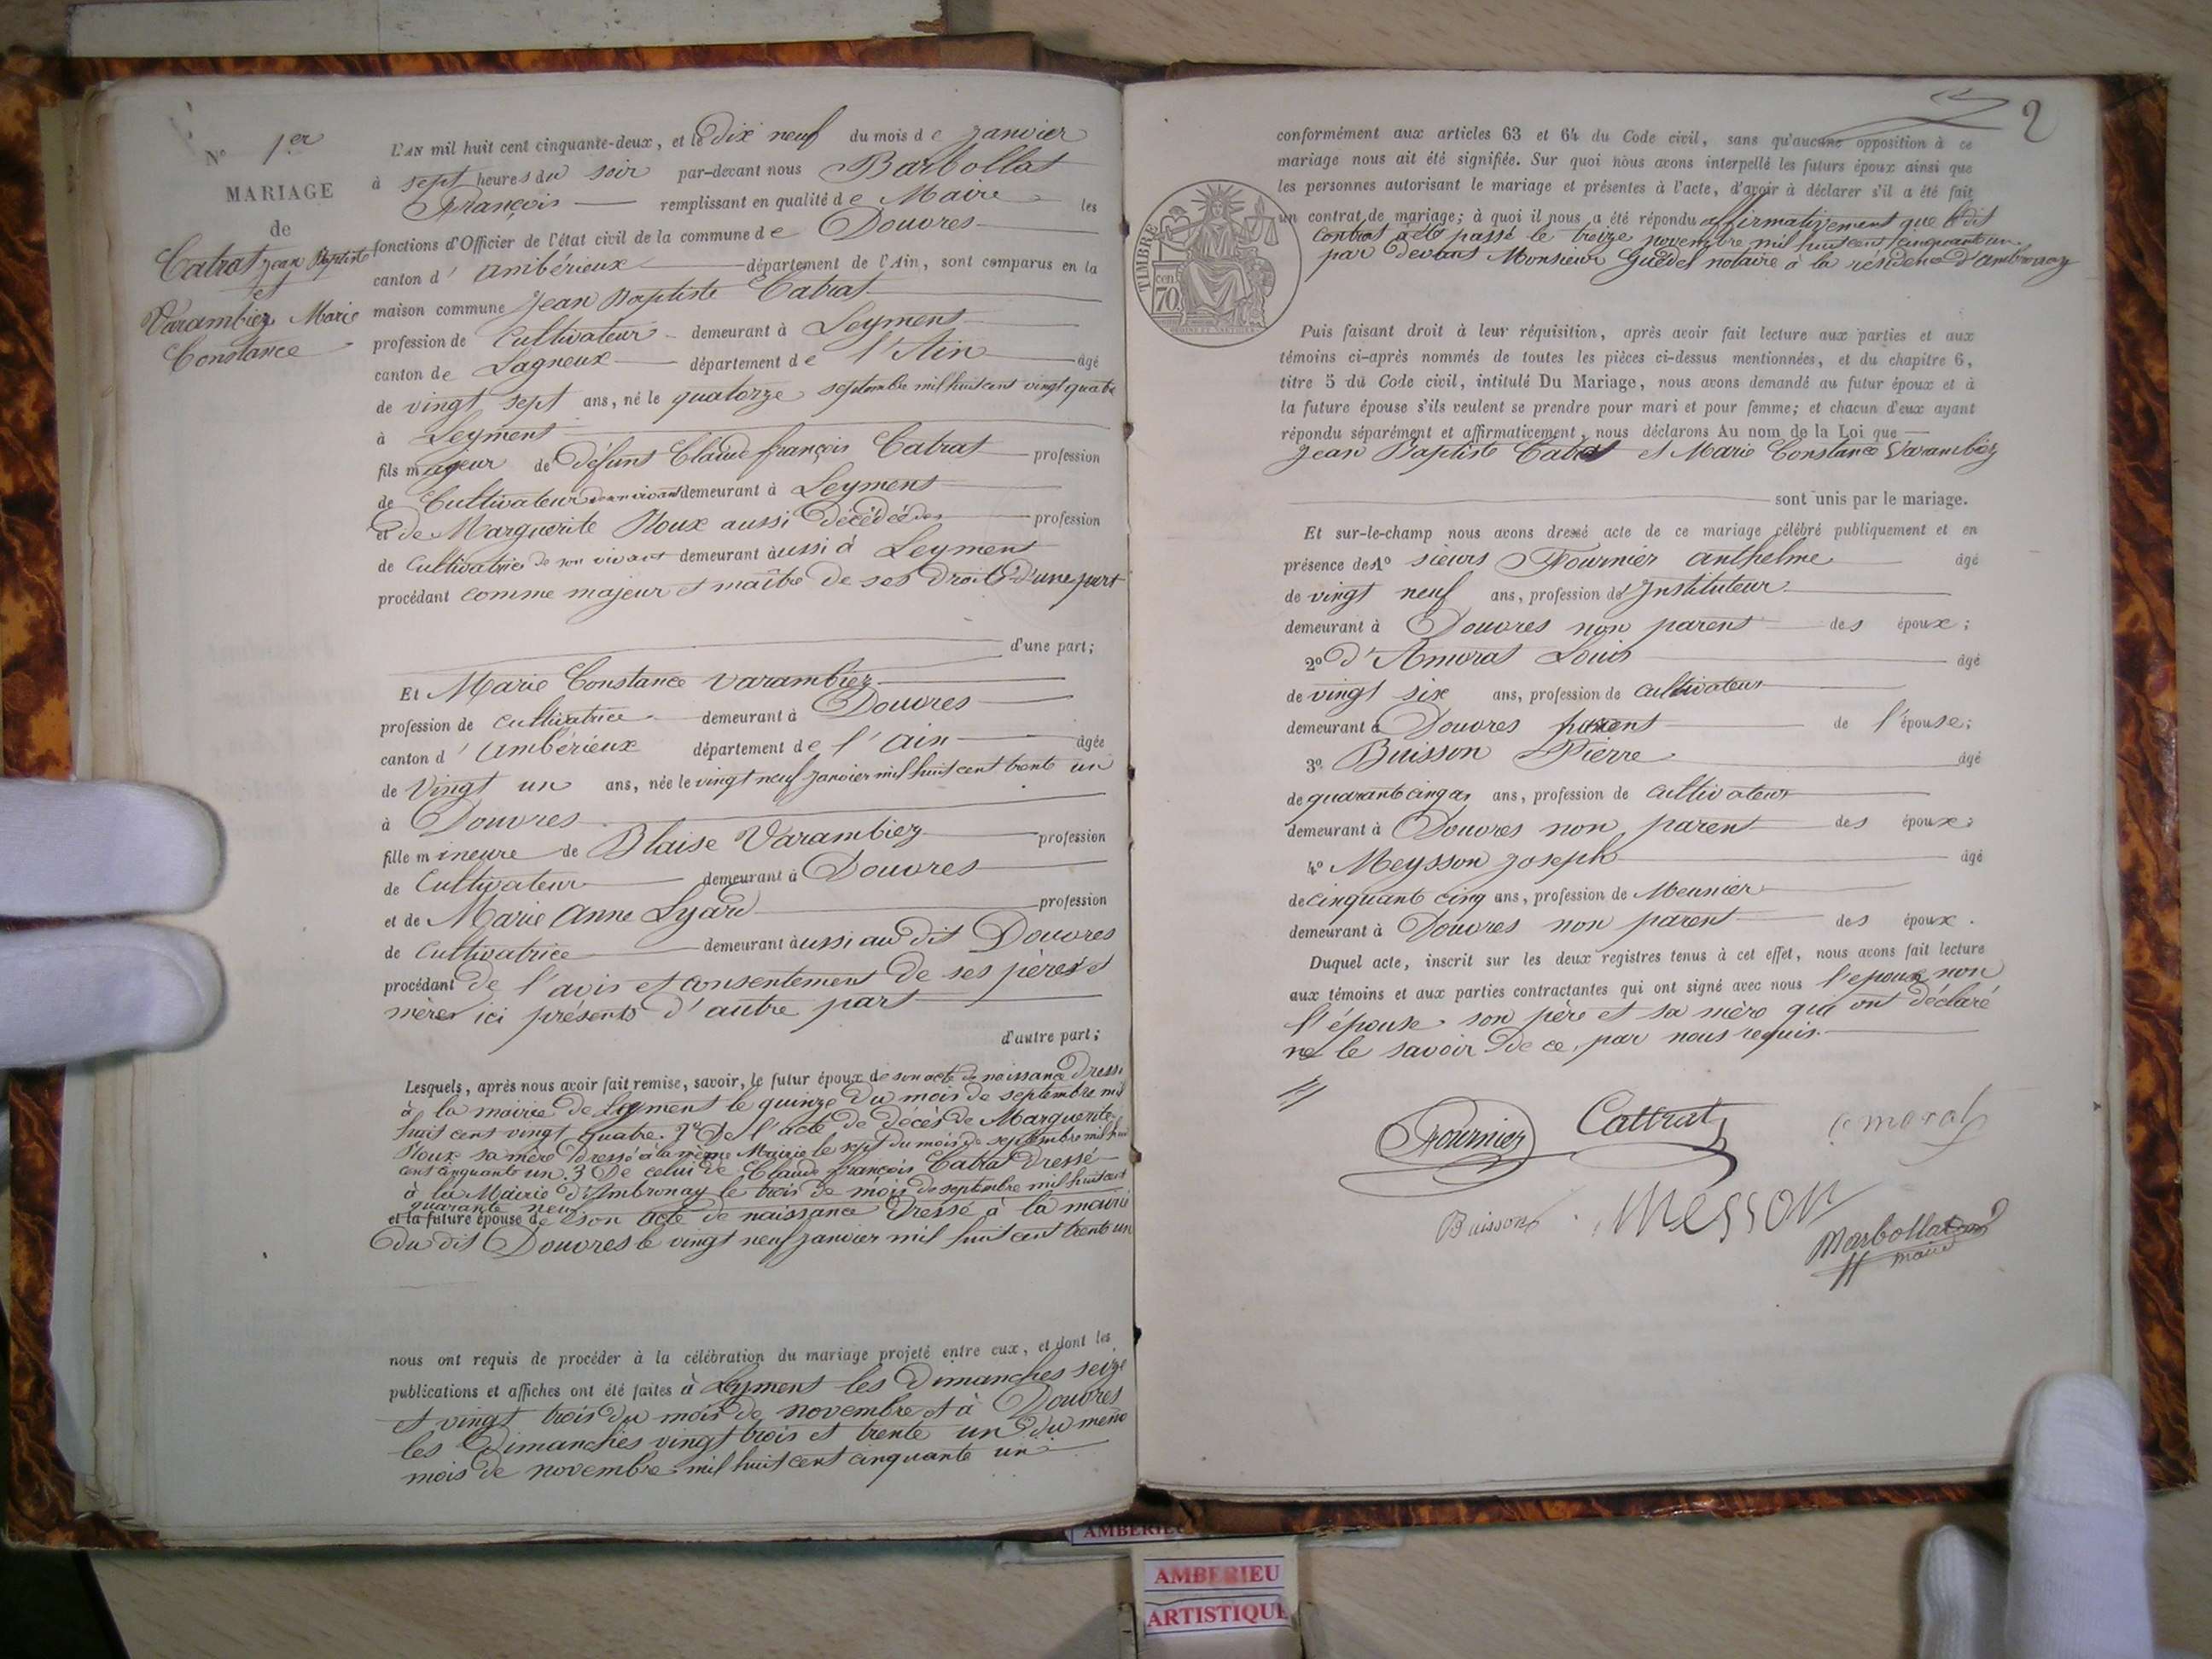 N° 1er
MARIAGE
de
Catrat Jean Baptiste
et
Varambiez Marie
Constance
L'AN mil huit cent cinquante-deux, et le Dix neuf du mois de Janvier
à sept heures du soir par-devant nous Barbollat
François remplissant en qualité de Maire les
fonctions d'Officier de l'état civil de la commune de Douvres
canton d'ambérieux département de l'Ain, sont comparus en la
maison commune Jean Baptiste Catrat
profession de Cultivateur demeurant à Leyment
canton de Lagneux département de l'Ain âgé
de vingt sept ans, né le quatorze septembre mil huit cent vingt quatre
à Leyment
fils majeur de Défunt Claude françois Catrat profession
de Cultivateur de son vivant demeurant à Leyment
et de Marguerite Roux aussi Décédée profession
de Cultivatrice de son vivant demeurant aussi à Leyment
procédant comme majeur et maître de ses Droits D'une part
d'une part;
Et Marie Constance Varambiez
profession de Cultivatrice demeurant à Douvres
canton d'ambérieux département de l'ain âgée
de Vingt un ans, née le vingt neuf Janvier mil huit cent trente un
à Douvres
fille mineure de Blaise Varambiez profession
de Cultivateur demeurant à Douvres
et de Marie Anne Lyard profession
de Cultivatrice demeurant aussi au dit Douvres
procédant De l'avis et consentement de ses pères et
mères ici présents d'autre part
d'autre part;
Lesquels, après nous avoir fait remise, savoir, le futur époux de son acte de naissance Dressé
à la mairie de Leyment le quinze Du mois de septembre mil
huit cent vingt quatre. 2° De l'acte de décès de Marguerite
Roux sa mère Dressé à la même Mairie le sept du mois de septembre mil huit
cent cinquante un. 3 De celui de Claude françois Catrat Dressé
à la Mairie d'Ambronay le trois de mois de septembre mil huit cent
quarante neuf
et la future épouse de son acte de naissance Dressé à la mairie
du dit Douvres le vingt neuf Janvier mil huit cent trente un
nous ont requis de procéder à la célébration du mariage projeté entre eux, et dont les
publications et affiches ont été faites à Leyment les Dimanches seize
et vingt trois du mois de novembre et à Douvres
les Dimanches vingt trois et trente un du même
mois de novembre mil huit cent cinquante un
2
conformément aux articles 63 et 64 du Code civil, sans qu'aucune opposition à ce
mariage nous ait été signifiée. Sur quoi nous avons interpellé les futurs époux ainsi que
les personnes autorisant le mariage et présentes à l'acte, d'avoir à déclarer s'il a été fait
un contrat de mariage; à quoi il nous a été répondu affirmativement que le dit
Contrat a été passé le treize novembre mil huit cent cinquante un
par devant Monsieur Guédel notaire à la résidence d'ambronay
TIMBRE
cen.
70
Puis faisant droit à leur réquisition, après avoir fait lecture aux parties et aux
témoins ci-après nommés de toutes les pièces ci-dessus mentionnées, et du chapitre 6,
titre 5 du Code civil, intitulé Du Mariage, nous avons demandé au futur époux et à
la future épouse s'ils veulent se prendre pour mari et pour femme; et chacun d'eux ayant
répondu séparément et affirmativement, nous déclarons Au nom de la Loi que
Jean Baptiste Catrat et Marie Constance Varambiez
sont unis par le mariage.
Et sur-le-champ nous avons dressé acte de ce mariage célébré publiquement et en
présence des 1° sieurs Fournier anthelme âgé
de vingt neuf ans, profession d'Instituteur
demeurant à Douvres non parent des époux;
2° D'Amorat Louis âgé
de vingt six ans, profession de cultivateur
demeurant à Douvres parent de l'épouse;
3° Buisson Pierre âgé
de quarante cinq ans, profession de cultivateur
demeurant à Douvres non parent des époux;
4° Meysson Joseph âgé
de cinquant cinq ans, profession de Meunier
demeurant à Douvres non parent des époux.
Duquel acte, inscrit sur les deux registres tenus à cet effet, nous avons fait lecture
aux témoins et aux parties contractantes qui ont signé avec nous l'epoux non
l'épouse son père et sa mère qui ont déclaré
ne le savoir de ce par nous requis.
Fournier Cattrat amorat
Buisson Messon
Barbollat
maire
AMBERIEU
AMBERIEU
ARTISTIQUE